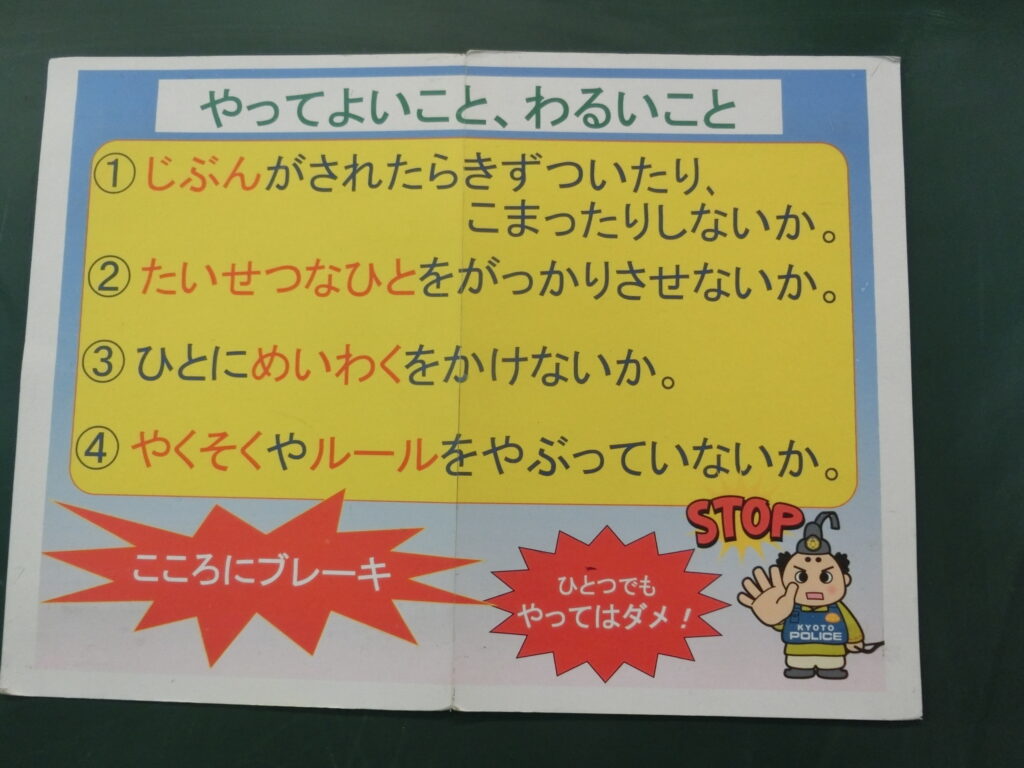 やってよいこと、わるいこと
①じぶんがされたらきずついたり、
こまったりしないか。
②たいせつなひとをがっかりさせないか。
③ひとにめいわくをかけないか。
④やくそくやルールをやぶっていないか。
こころにブレーキ
ひとつでも
やってはダメ!
STOP
KYOTO
POLICE